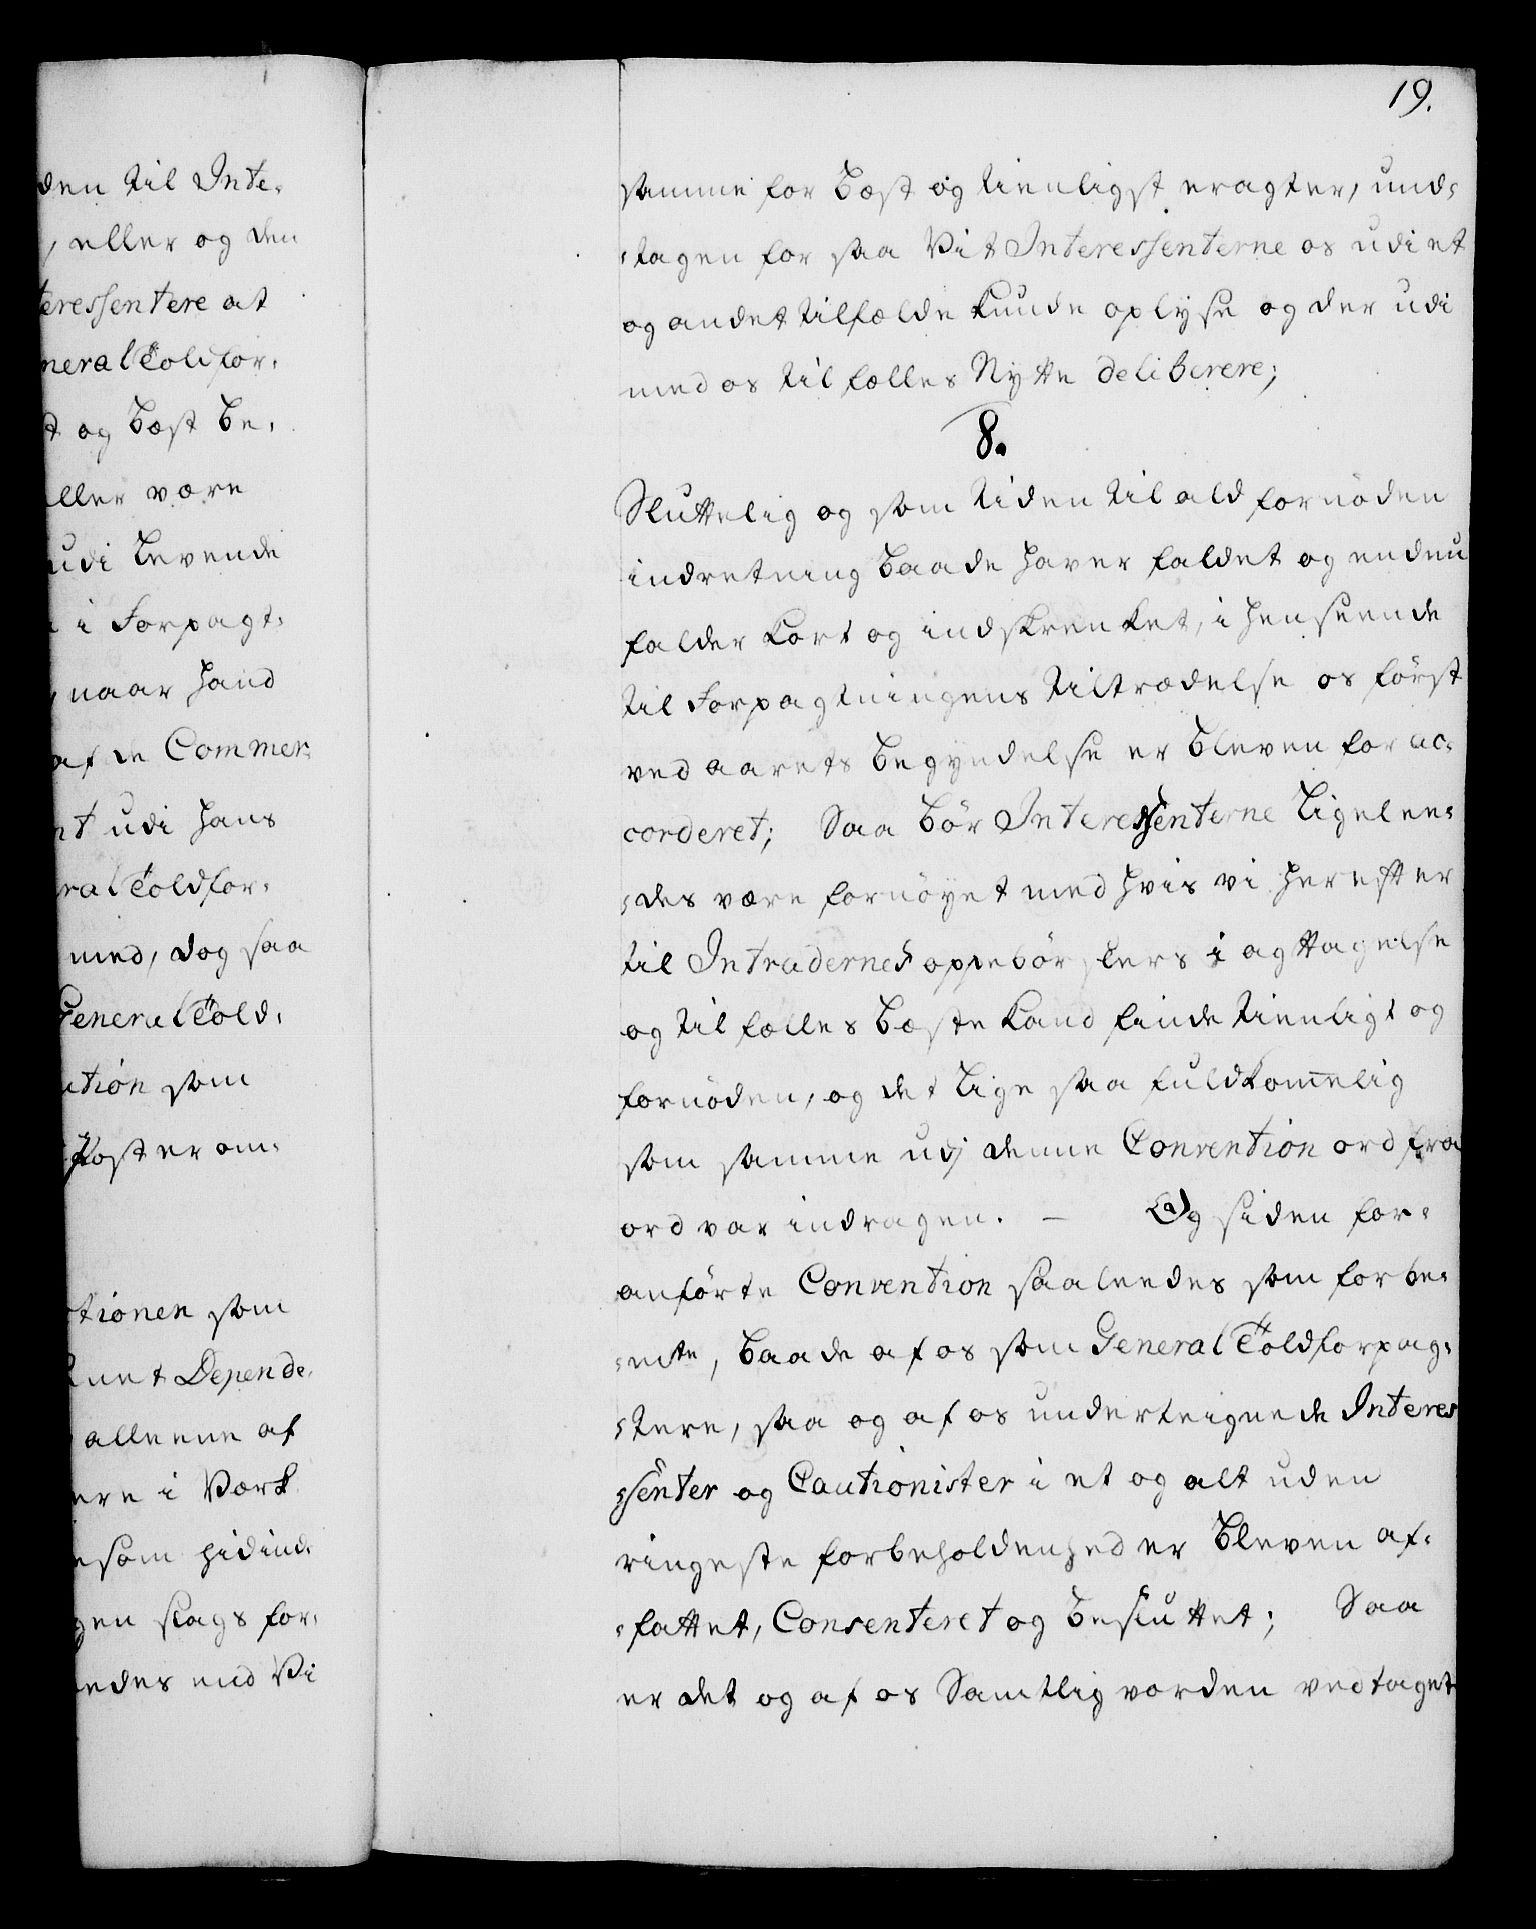 den til Inte-
, eller og den
teressentere at
neral Told for-
t og best be-
ller være
udi levende
i Forpagt-
, naar hand
af de Commer-
nt udi hans
ral Toldfor-
med, dog saa
General Told-
ution som
Poster om-
ctionen som
Depende-
alleene af
ere i Værk
som hidind-
gen slags for-
edes end Vi
19.
samme for best og tienligst eragter, und-
-tagen for saa vit Interessenterne os udi et
og andet tilfælde kunde oplyse og der udi
med os til fælles Nytte deliberere;
8.
Sluttelig og som tiden til ald fornöden
indretning baade haver faldet og endnu
falder kort og indskrenket, i henseende
til Forpagtningens tiltrædelse os först
ved aarets begyndelse er bleven for ac-
corderet; Saa bör Interessenterne ligelee-
-des være fornöyet med hvis vi herefter
til Intradernes oppebörslers i agttagelse
og til fælles beste kand finde tienligt og
fornöden, og det lige saa fuldkom̅elig
som samme udj denne Convention ord fra
ord var indragen. — Og siden for-
anförte Convention saaleedes som forbe-
-mte, baade af os som General Toldforpag-
-tere, saa og af os underteignede Interes
-senter og Cautionister i et og alt uden
ringeste forbeholdenhed er bleven af-
-fattet, Consenteret og besluttet; Saa
er det og af os Samtlig vorden vedtaget